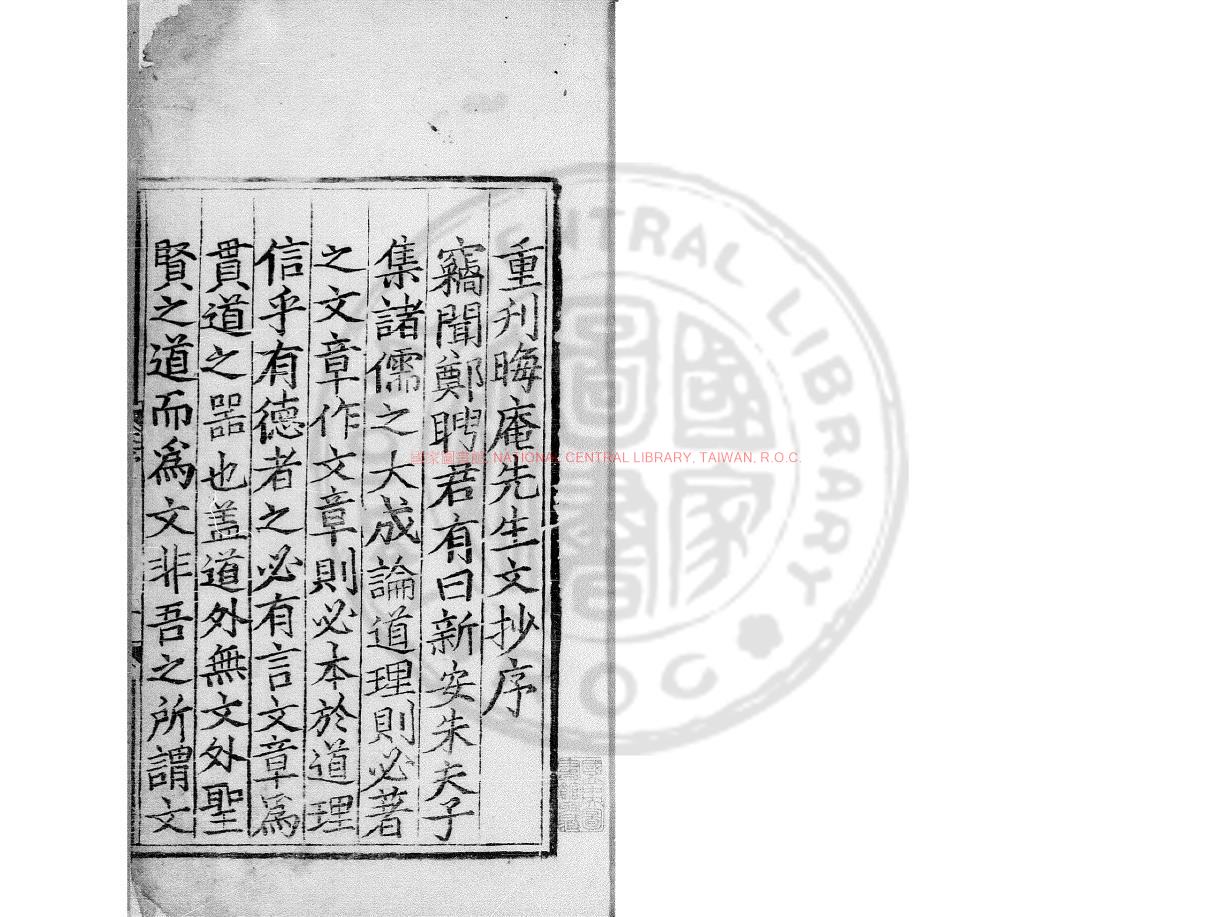 重刋晦庵先生文抄序
竊聞鄭聘君有曰新安朱夫子
集諸儒之大成論道理則必著
之文章作文章則必本於道理
信乎有德者之必有言文章爲
貫道之器也盖道外無文外聖
賢之道而爲文非吾之所謂文
國家圖書館, NATIONAL CENTRAL LIBRARY, TAIWAN, R.O.C.
CENTRAL LIBRARY
ROC